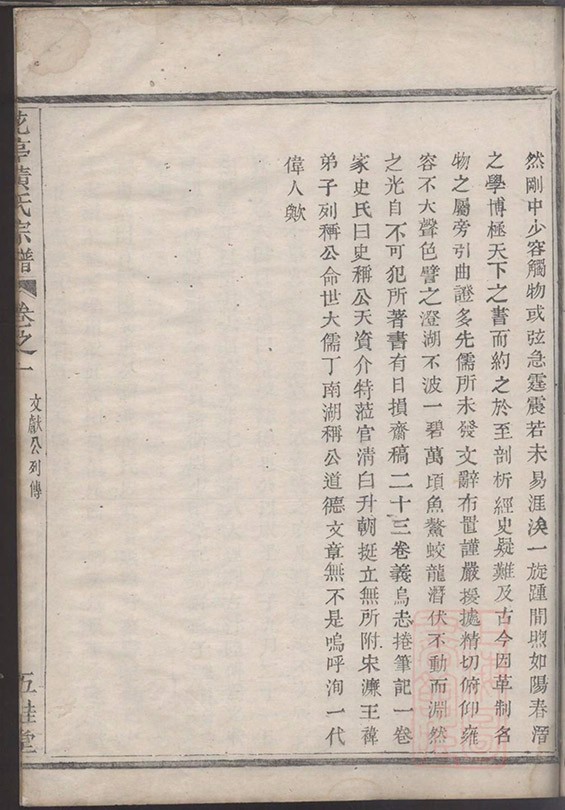 然剛中少容觸物或弦急霆震若未易涯涘一旋踵間煦如陽春溍
之學博極天下之書而約之於至剖析經史疑難及古今因革制名
物之屬旁引曲證多先儒所未發文辭布置謹嚴援據精切俯仰雍
容不大聲色譬之澄湖不波一碧萬頃魚鱉蛟龍潛伏不動而淵然
之光自不可犯所著書有日損齋稿二十三卷義烏志捲筆記一卷
家史氏曰史稱公天資介特蒞官清白升朝挺立無所附宋濂王褘
弟子列稱公命世大儒丁南湖稱公道德文章無不是嗚呼洵一代
偉人歟
花亭黃氏宗譜
卷之一
文獻公列傳
五桂堂